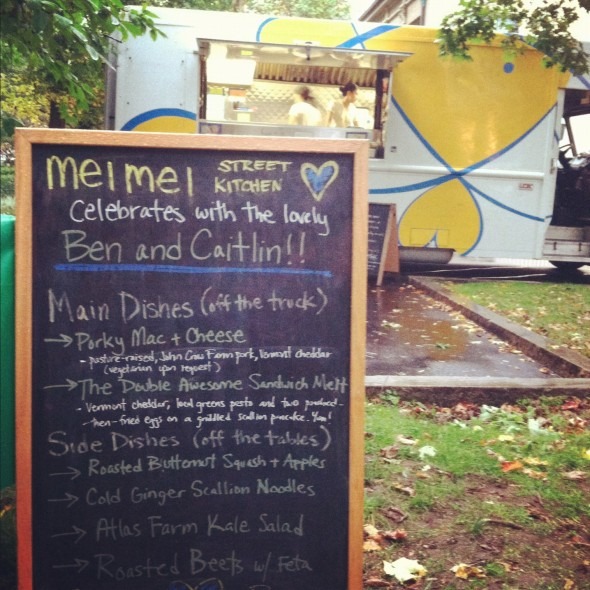 meimei STREET KITCHEN
Celebrates with the lovely
Ben and Caitlin!!
Main Dishes (off the truck)
→ Porky Mac + Cheese
- pasture-raised, John Crow Farm pork, Vermont cheddar
(vegetarian upon request)
→ The Double Awesome Sandwich Melt
- Vermont cheddar, local greens pesto and two
-then-fried eggs on a griddled scallion pancake. Yum!
Side Dishes (off the tables)
→ Roasted Butternut Squash + Apples
→ Cold Ginger Scallion Noodles
→ Atlas Farm Kale Salad
→ Roasted Beets w/ Feta